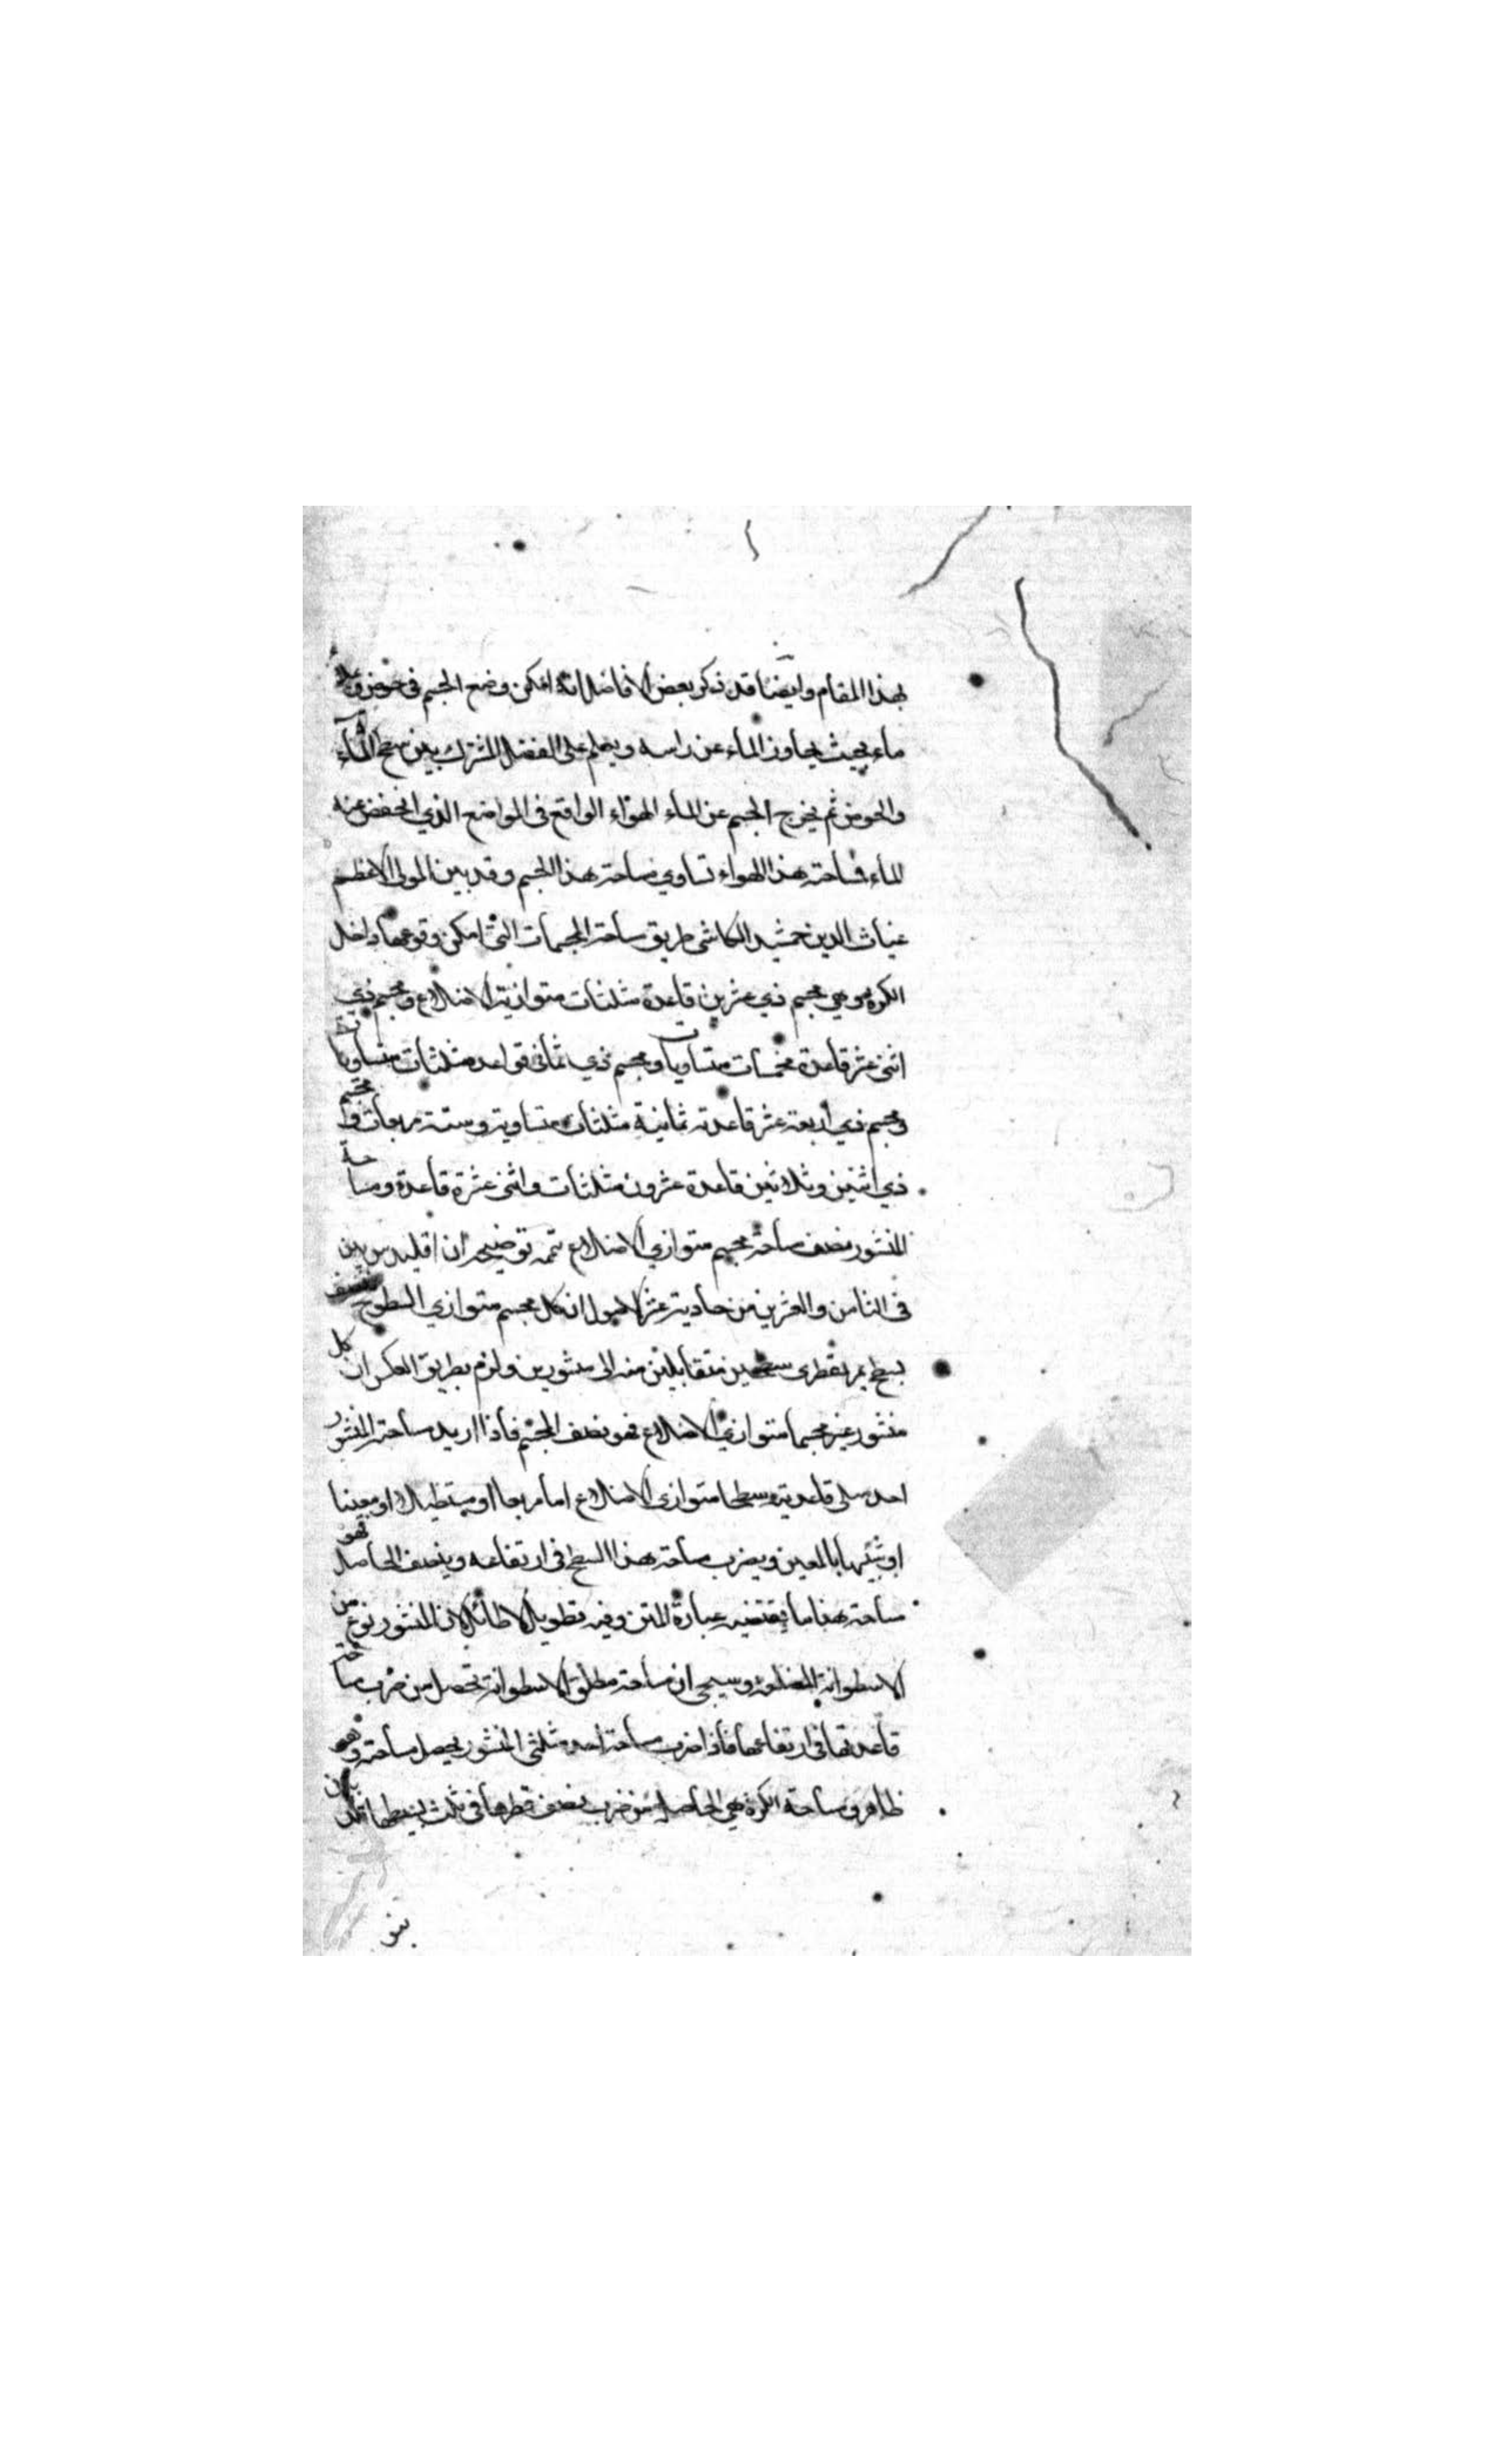 بهذا المقام وايضا قد ذكر بعض الافاضل انه امكن وضع الجسم فى حوض وملا
ماء بحيث يجاوز الماء عن راسه ويعلم على الفصل المشترك بين سطح الماء
والحوض ثم يخرج الجسم عن الماء الهواء الواقع فى المواضع الذي انخفض عنه
الماء فمساحته هذا الهواء تساوي مساحته هذا الجسم وقد بين المولى الاعظم
غياث الدين جمشيد الكاشى طريق مساحته المجسمات التى امكن وقوعها داخل
الكره وهي مجسم ذي عشرين قاعدة مثلثات متوازية الاضلاع ومجسم ذي
اثنى عشر قاعدة مخمسات متساويات ومجسم ذي ثمانى قواعد مثلثات متساويات
ومجسم ذي اربعة عشر قاعدة ثمانية مثلثات متساوية وستة مربعات ومجسم
ذي اثنين وثلاثين قاعدة عشرون مثلثات واثنى عشرة قاعدة ومساحة
المنشور نصف مساحة مجسم متوازي الاضلاع تتمه توضيحه ان اقليدس بين
فى الثامن والعشرين من حادية عشر الاصول ان كل مجسم متوازي السطوح
بسطح يمر بقطرى سطحين متقابلين منه الى منشورين ولزم بطريق العكس ان كل
منشور مجسما متوازي الاضلاع فهو نصف المجسم فاذا اريد مساحة المنشور
قاعديته سطحا متوازى الاضلاع اما مربعا او مستطيلا او معينا
او شبيها بالمعين ويضرب مساحته هذا السطح فى ارتفاعه وينصف الحاصل فهو
مساحته هذا ما يقتضيه عبارة المتن وفيه تطويل لا طائل لان المنشور نوع من
الاسطوانة المضلعة وسيجى ان مساحته مطلق الاسطوانة تحصل من ضرب مساحته
قاعدتها فى ارتفاعها فاذا ضرب مساحته احد مثلثى المنشور يحصل مساحته وهو
ظاهر ومساحة الكرة هي الحاصلة من ضرب نصف قطرها فى ثلث بسيطها